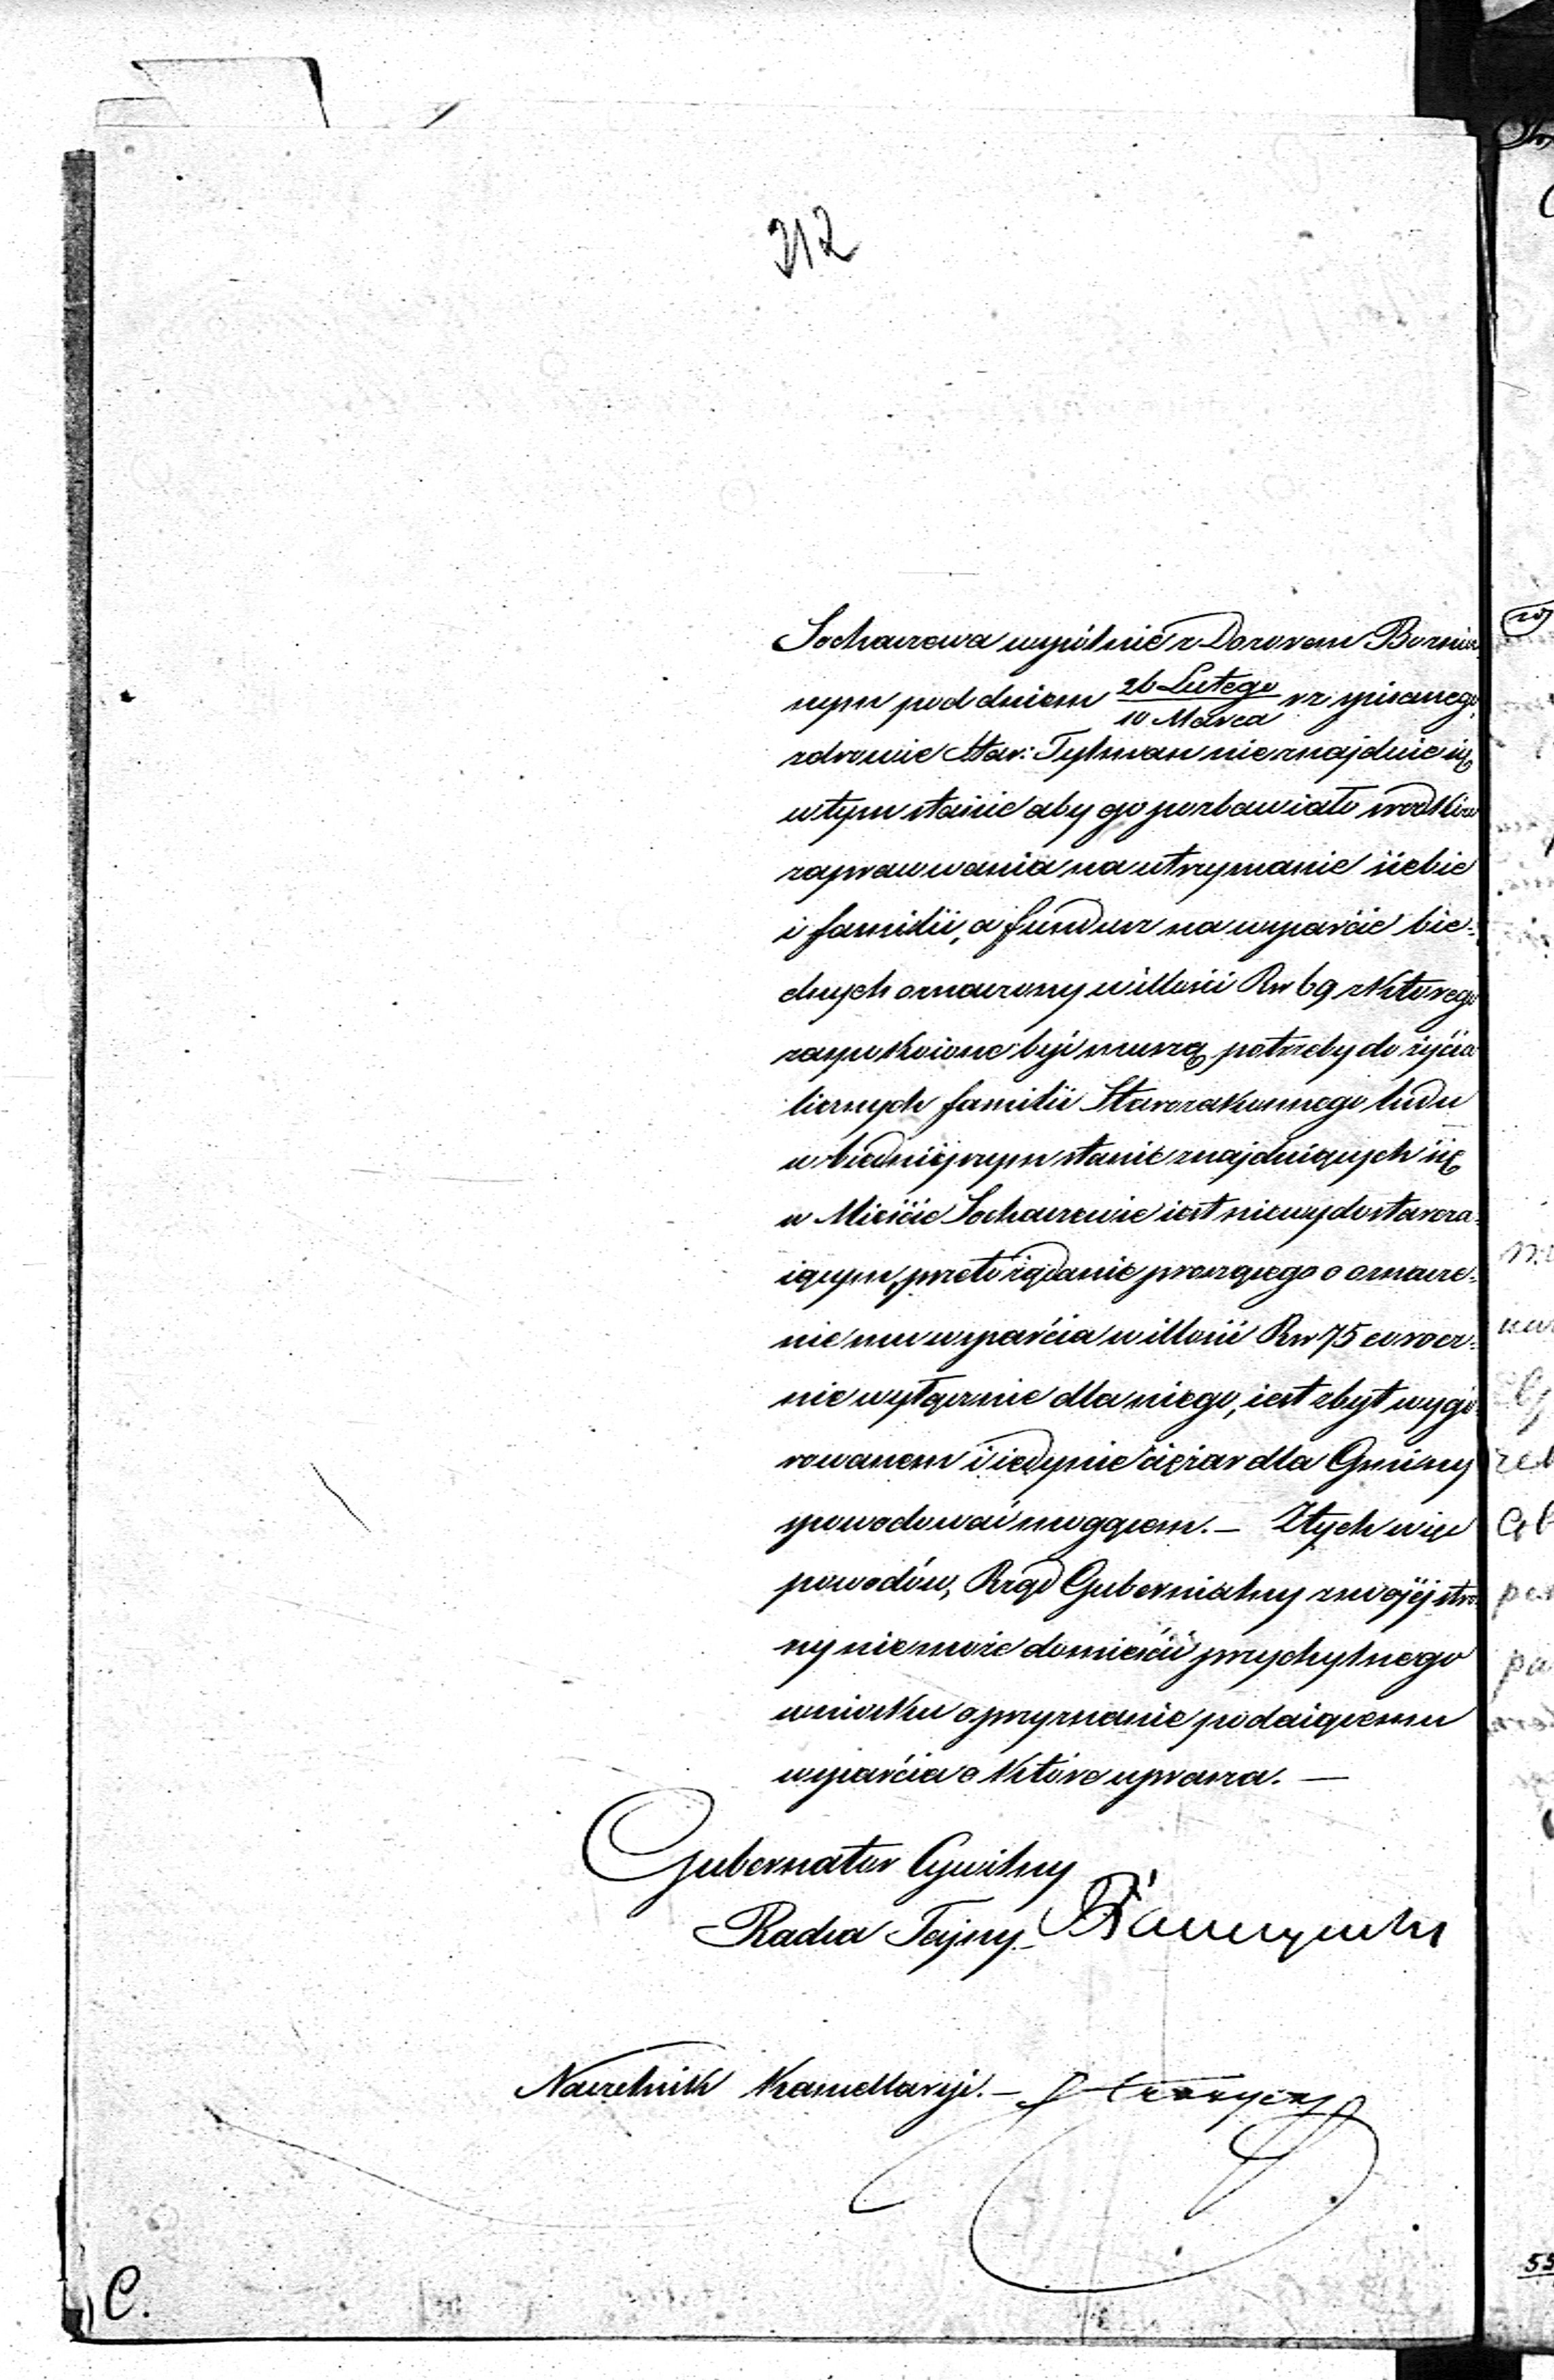 212
Sochaczewa wspólnie z Dozorem Bożnicz-
nym pod dniem 26 Lutego / 10 Marca rz. spisanego,
zdrowie Star: Tylman nieznajduie się
w tym stanie aby go pozbawiało srodków
zapracowania na utrzymanie siebie
i familii, a fundusz na wsparcie bie-
dnych oznaczony w illości Rsr 69 z którego
zaspokoione być muszą potrzeby do życia
licznych familii Starozakonnego ludu
w biedniejszym stanie znajduiących się
w Mieście Sochaczewie iest niewydostarcza-
iącym, przeto żądanie proszącego o oznacze-
nie mu wsparcia w illości Rsr 75 corocz-
nie wyłącznie dla niego, iest zbyt wygó-
rowanem i iedynie ciężar dla Gminy
spowodować mogącem. — Z tych więc
powodów, Rząd Gubernialny z swojéj stro-
ny nie może domieścić przychylnego
wniosku o przyznanie podaiącemu
wsparcia o które uprasza. —
Gubernator Cywilny
Radca Tajny
Naczelnik Kancellaryi. —
C.